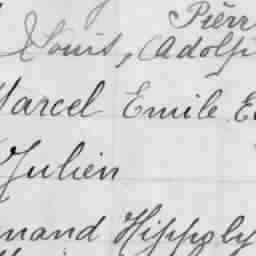 Pierr
Louis, Adolp
Marcel Emile E
Julien
nand Hippoly